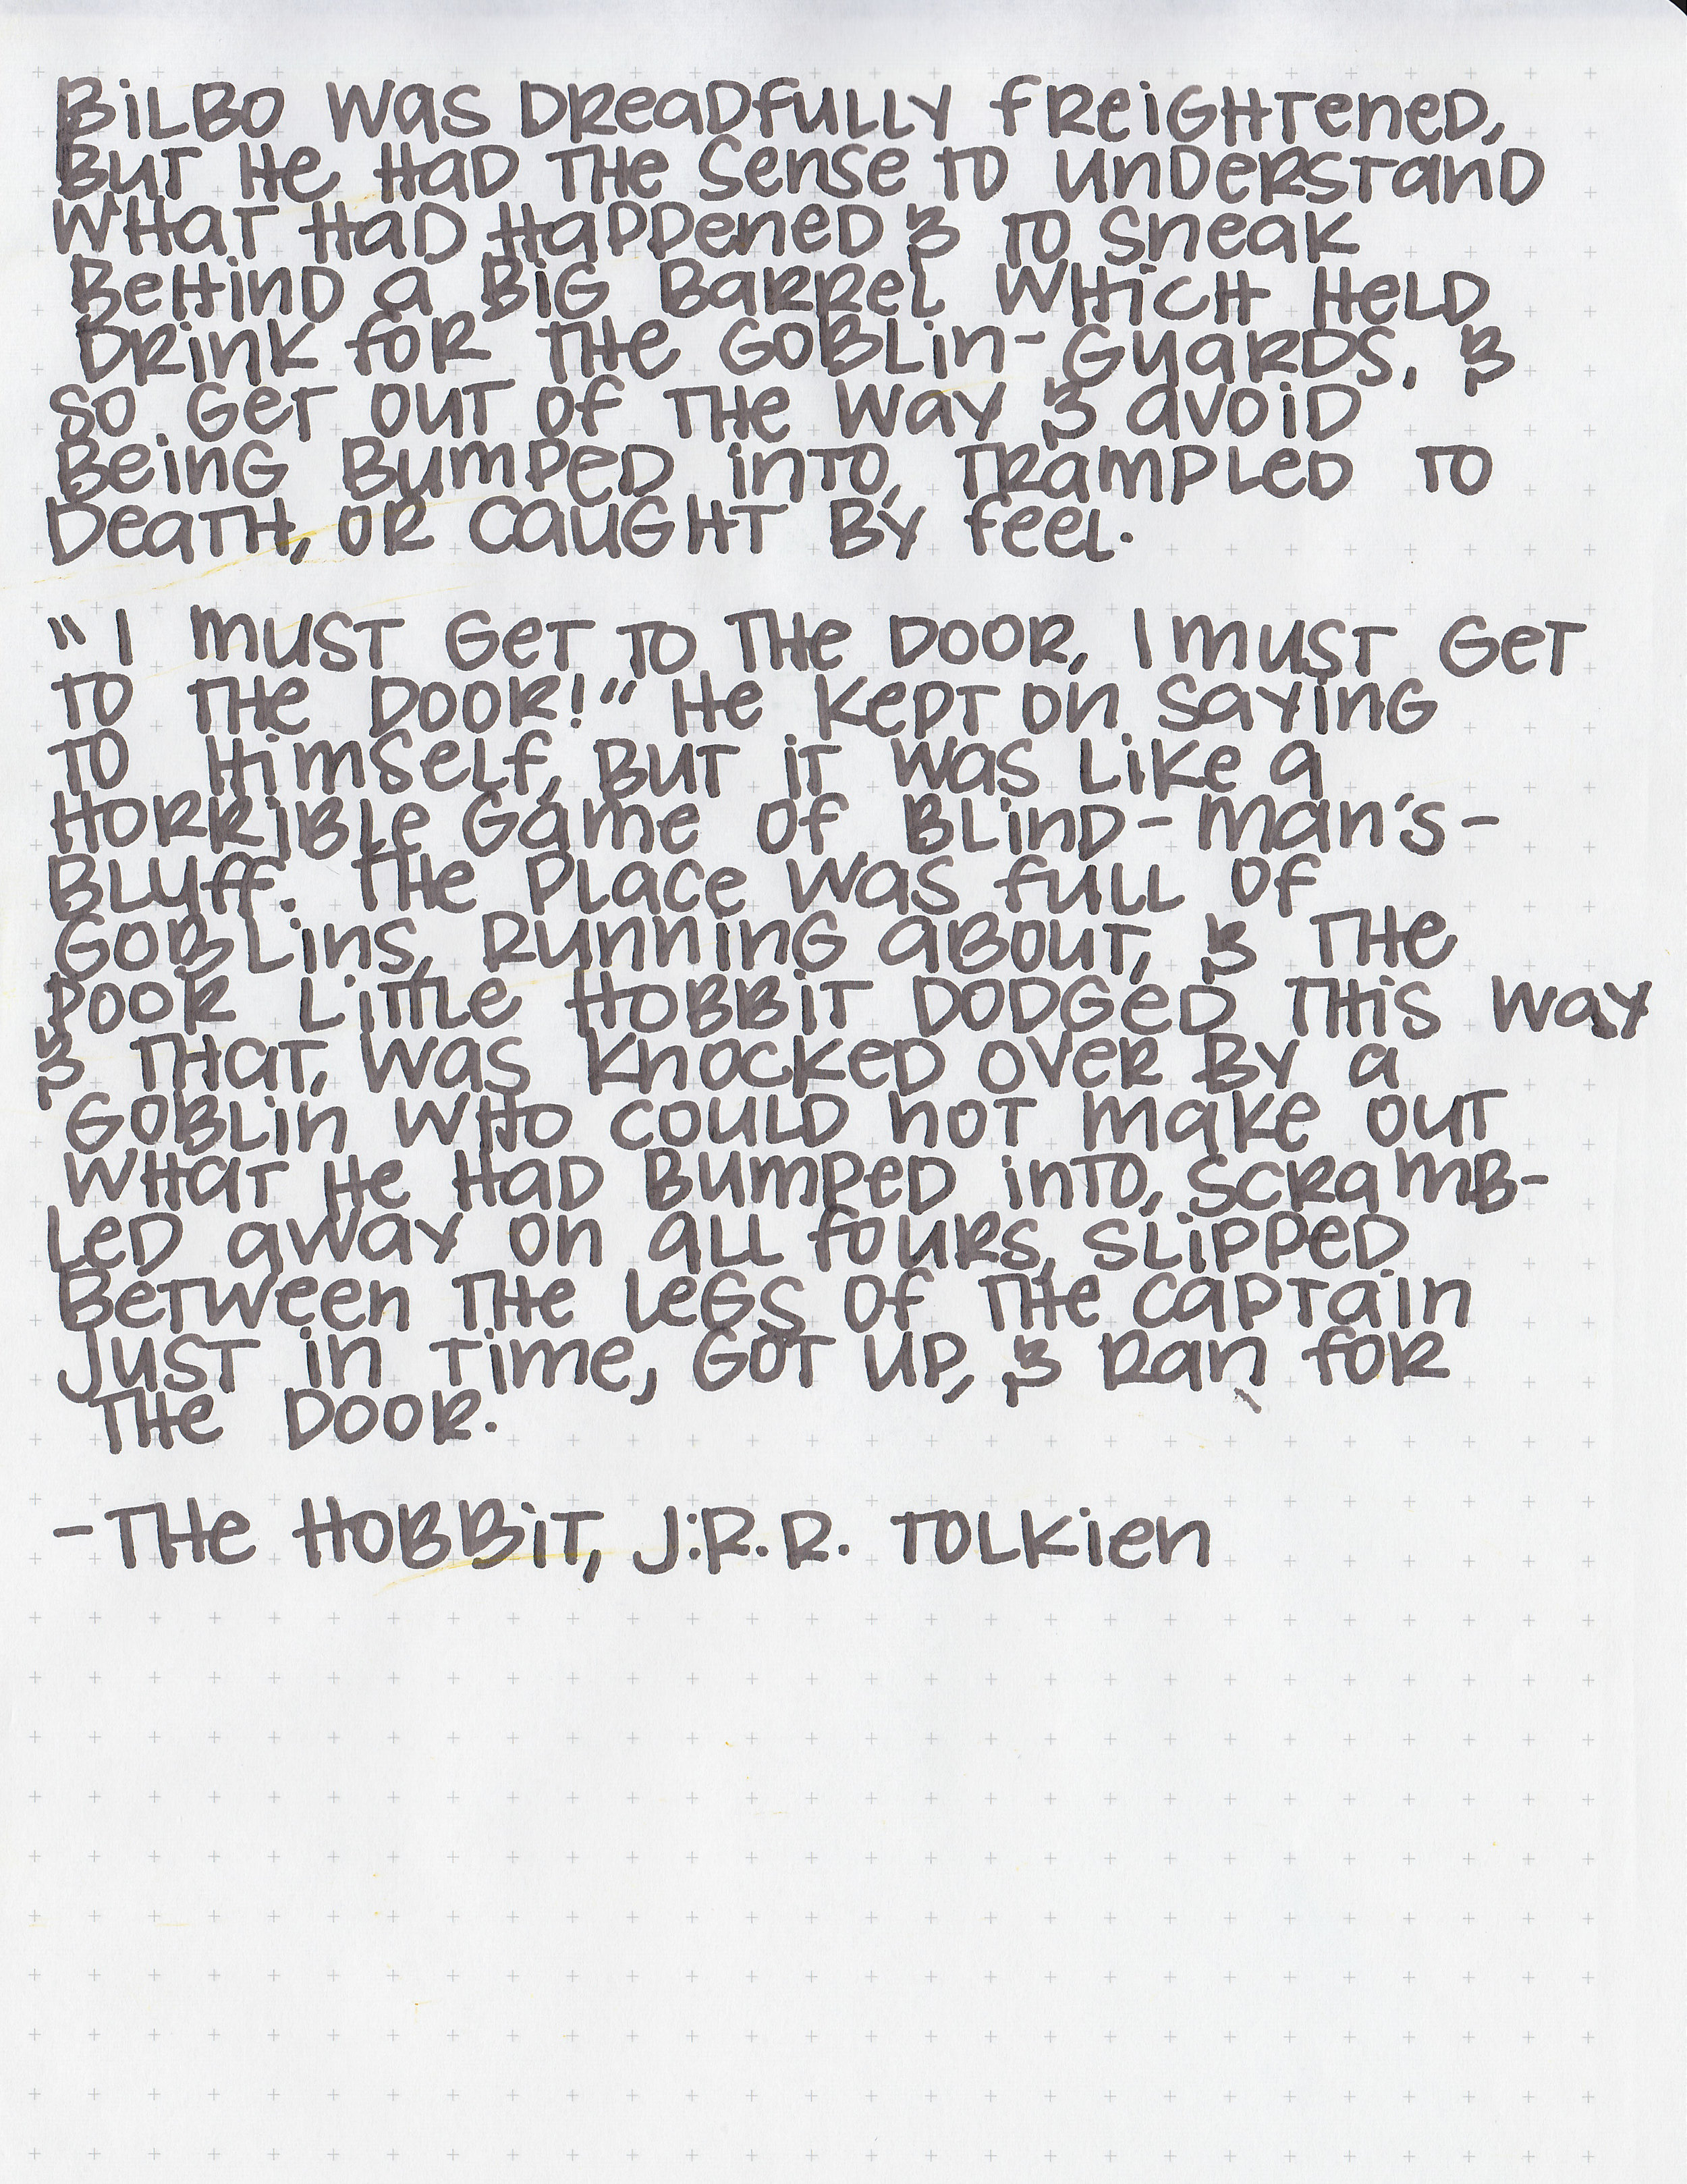 Bilbo was dreadfully freightened,
but he had the sense to understand
what had happened & to sneak
behind a big barrel which held
drink for the goblin-guards, &
so get out of the way & avoid
being bumped into, trampled to
death, or caught by feel.
"I must get to the door, I must get
to the door!" he kept on saying
to himself, but it was like a
horrible game of blind-man's-
bluff. The place was full of
goblins, running about, & the
poor little hobbit dodged this way
& that, was knocked over by a
goblin who could not make out
what he had bumped into, scramb-
led away on all fours, slipped
between the legs of the captain
just in time, got up, & ran for
the door.
- The Hobbit, J.R.R. Tolkien